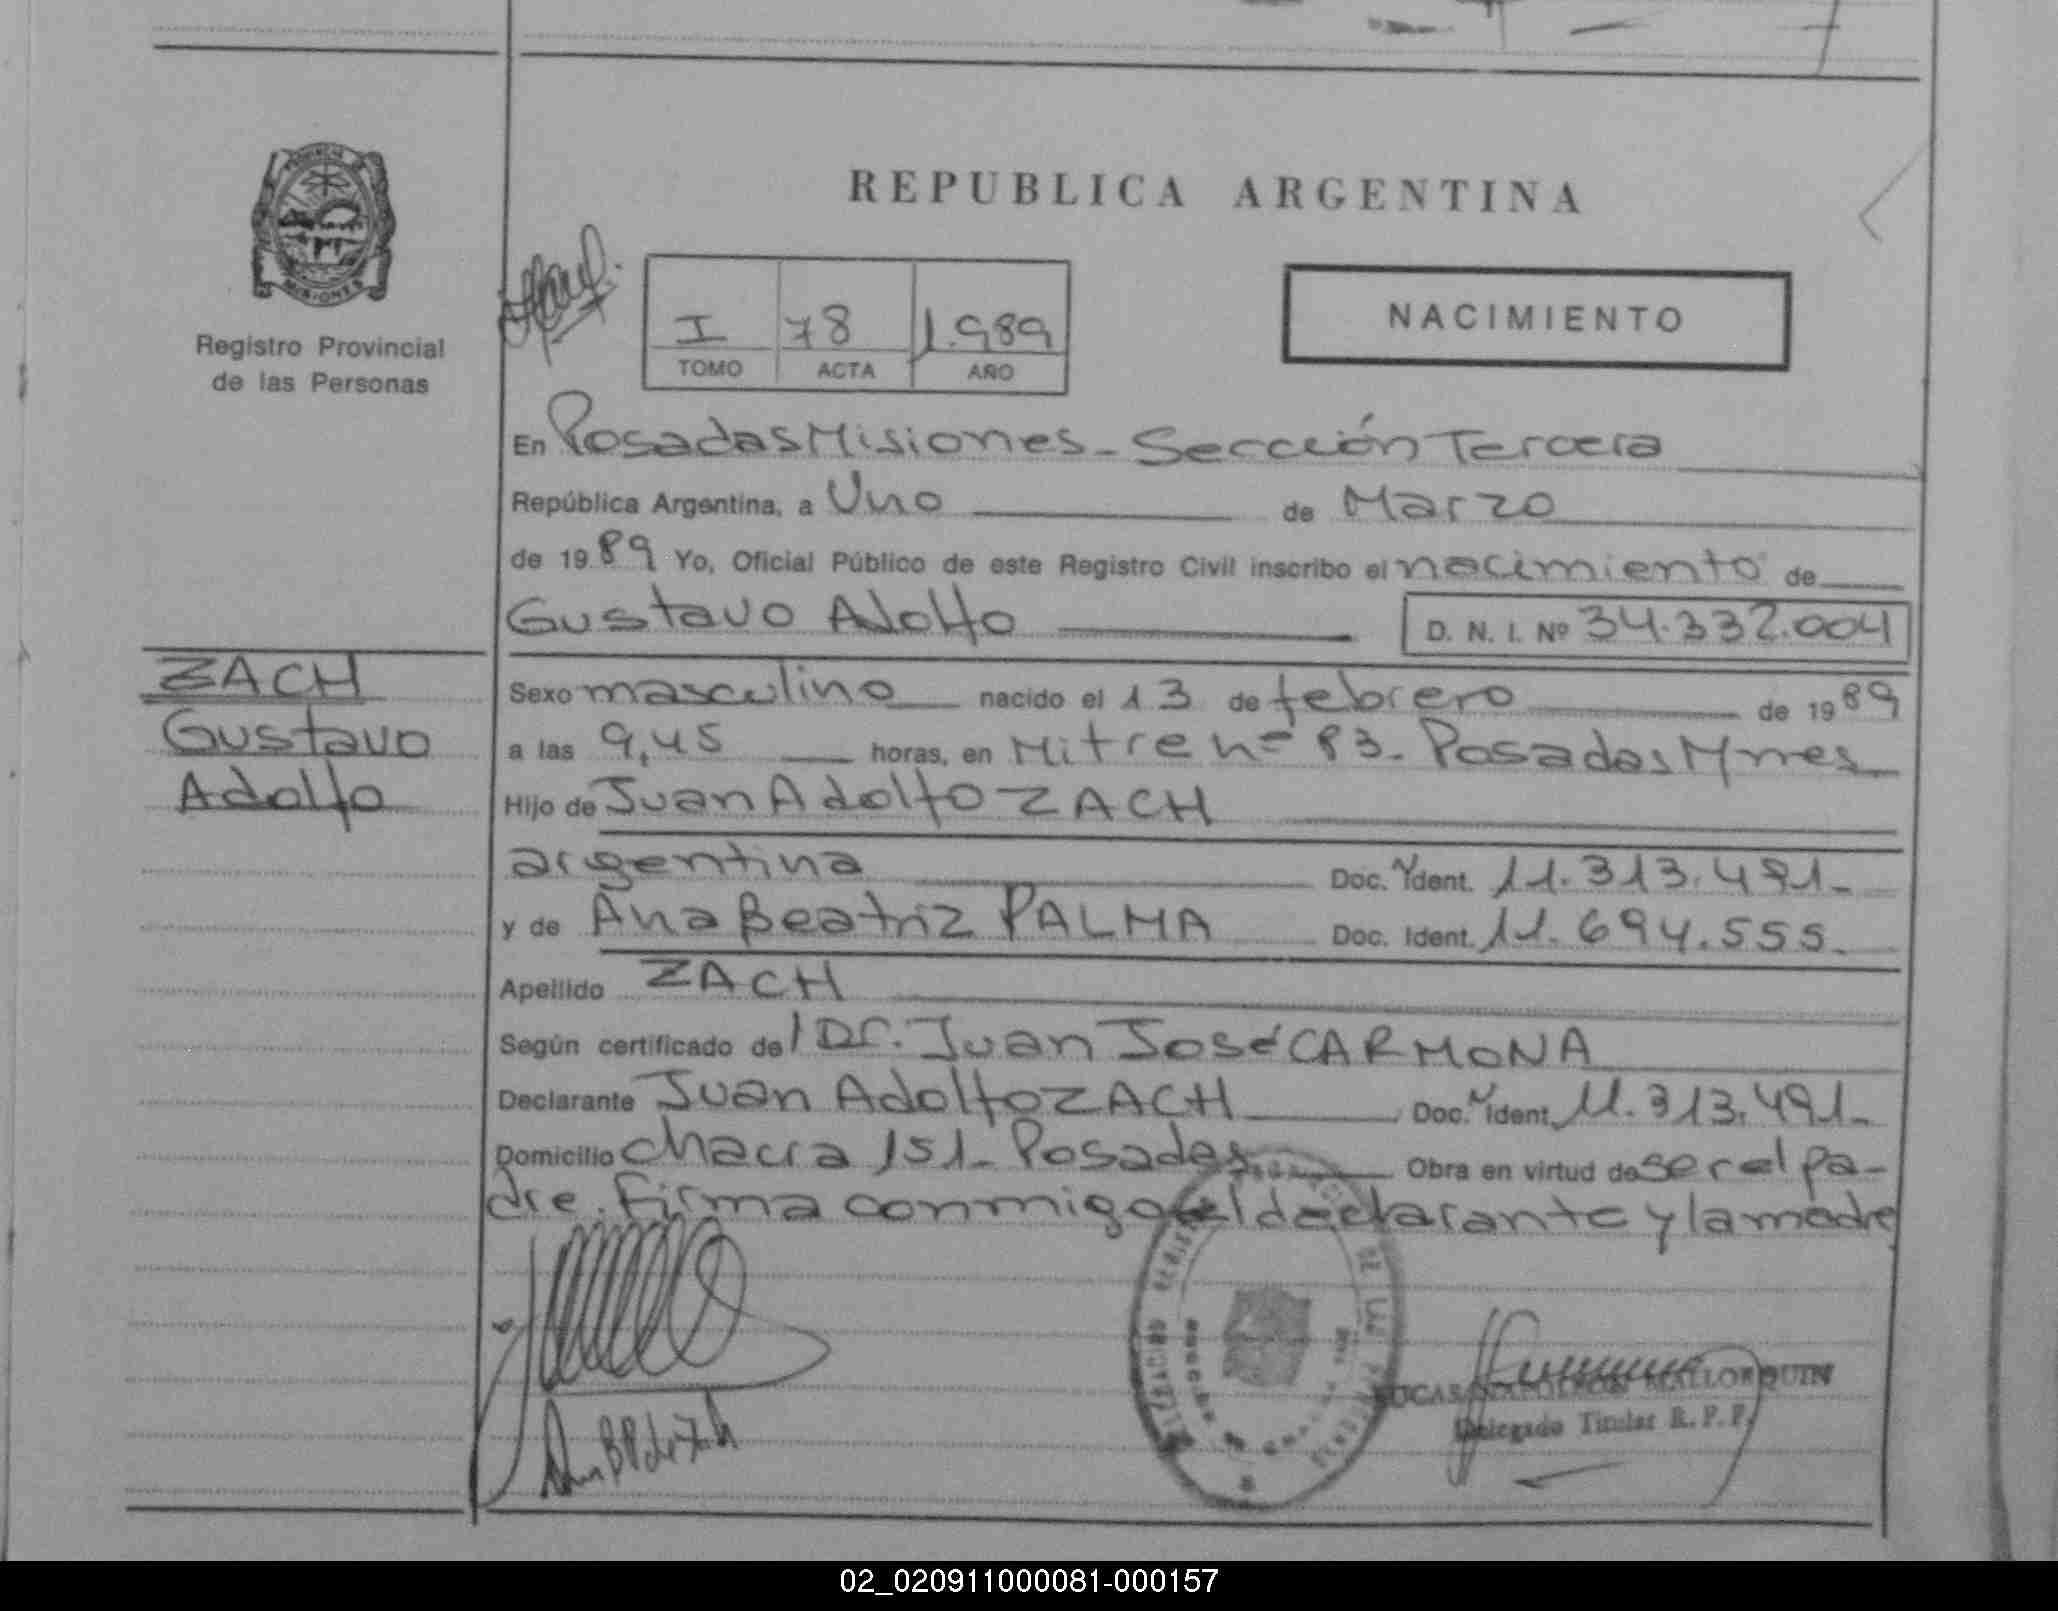 PROVINCIA DE
MISIONES
Registro Provincial
de las Personas
REPUBLICA ARGENTINA
I 78 1.989
TOMO ACTA AÑO
NACIMIENTO
En Posadas Misiones - Sección Tercera
República Argentina, a Uno de Marzo
de 1989 Yo, Oficial Público de este Registro Civil inscribo el nacimiento de
Gustavo Adolfo D. N. I. Nº 34.332.004
ZACH
Gustavo
Adolfo
Sexo masculino nacido el 13 de febrero de 1989
a las 9,45 horas, en Mitre nº 83. Posadas Mnes
Hijo de Juan Adolfo ZACH
argentina Doc. Ident. 11.313.491-
y de Ana Beatriz PALMA Doc. Ident. 11.694.555.
Apellido ZACH
Según certificado de l Dr. Juan José CARMONA
Declarante Juan Adolfo ZACH Doc. Ident. 11.313.491-
Domicilio Chacra 151- Posadas Obra en virtud de ser el pa-
dre. Firma conmigo el declarante y la madre
LUCAS NAPOLEON MALLORQUIN
Delegado Titular R. P. P.
02_020911000081-000157